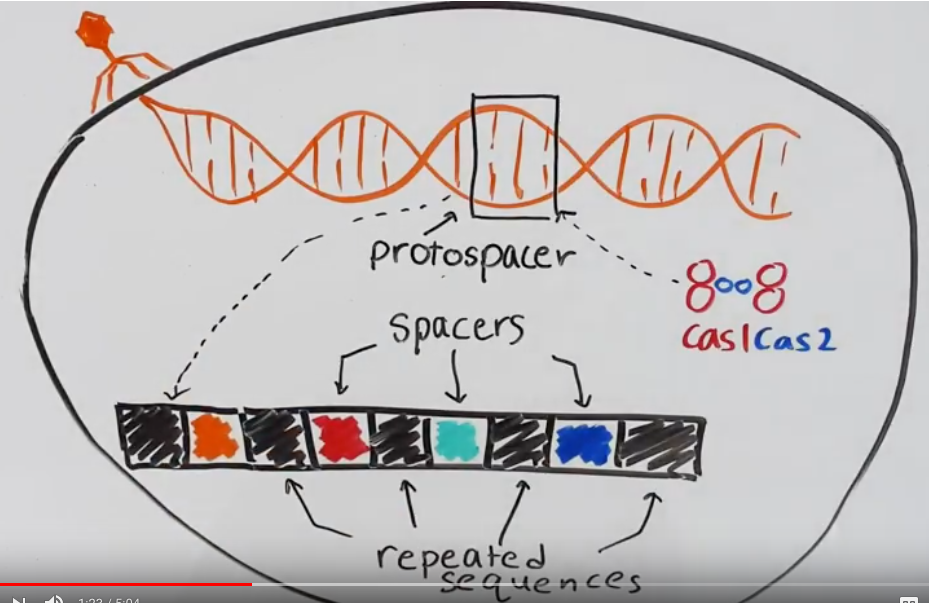 protospacer
Cas1Cas2
spacers
repeated
sequences
1:23 / 5:04